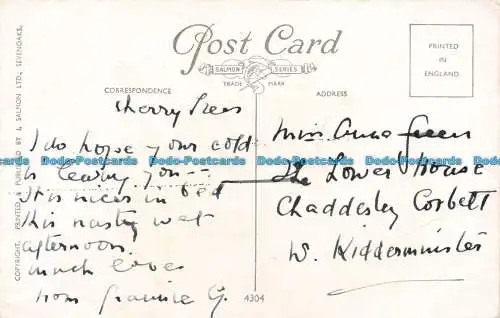 Post Card
SALMON SERIES
TRADE MARK
CORRESPONDENCE
ADDRESS
PRINTED
IN
ENGLAND
COPYRIGHT. PRINTED & PUBLISHED BY J. SALMON LTD., SEVENOAKS.
Cherry Trees
I do hope your cold
is leaving you --
It is nice in bed
this nasty wet
afternoon.
much love
from G.
Miss Anna Green
The Lower House
Chaddesley Corbett
W. Kidderminster
4304
Dodo-Postcards Dodo-Postcards Dodo-Postcards Dodo-Postcards